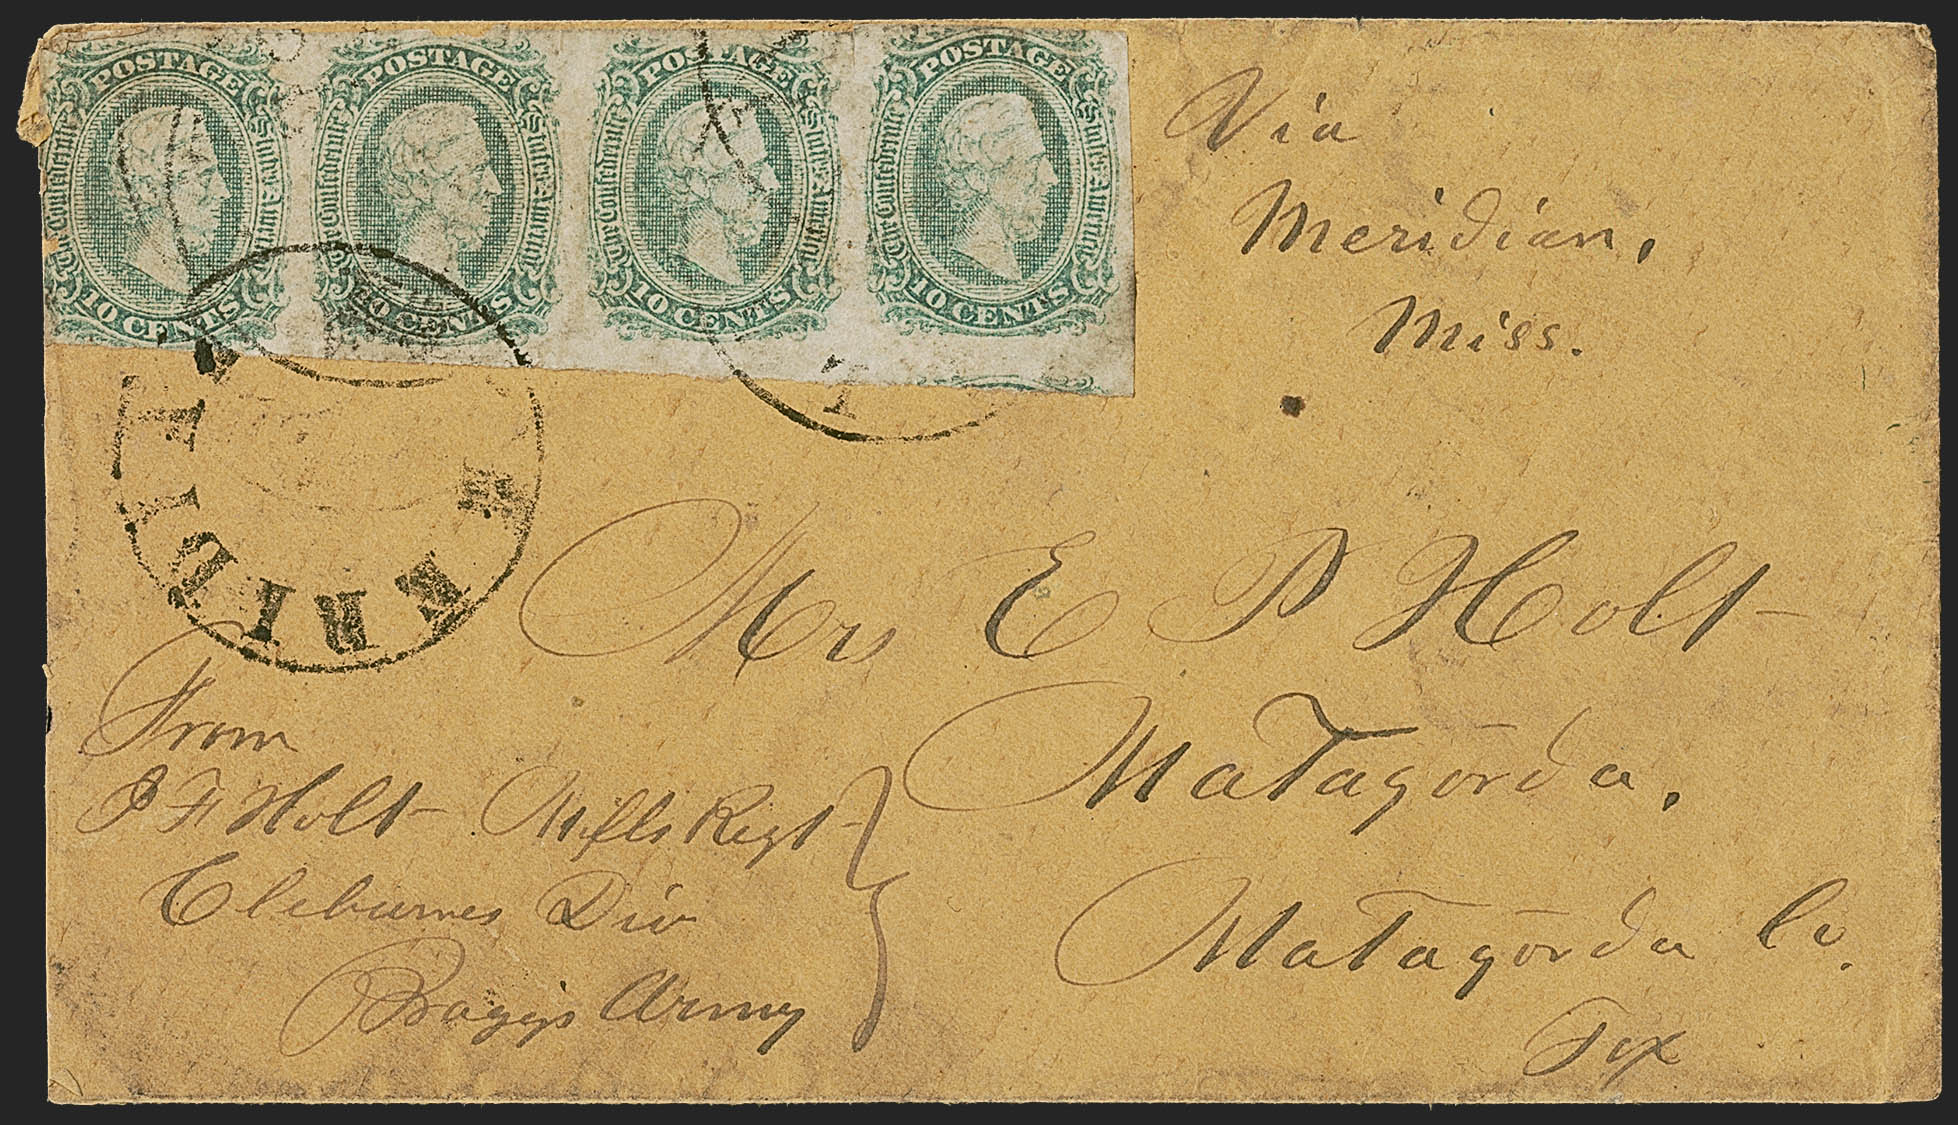 POSTAGE POSTAGE POSTAGE POSTAGE
The Confederate States America The Confederate States America The Confederate States America The Confederate States America
10 CENTS 10 CENTS 10 CENTS 10 CENTS
Via
Meridian,
Miss.
Mrs E P Holt
Matagorda,
Matagorda Co.
Tex
From
P F Holt Regt
Cleburnes Div
Braggs Army